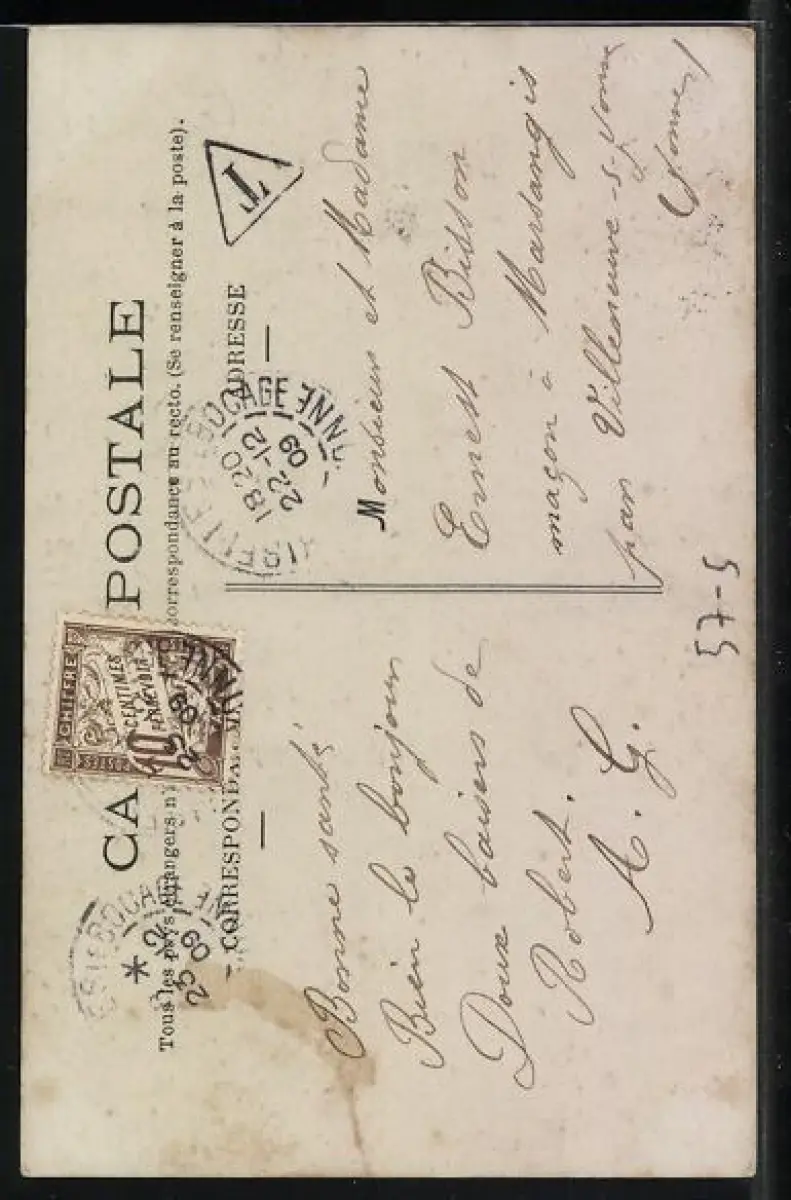 CA POSTALE
Tous les pays étrangers n correspondance au recto. (Se renseigner à la poste).
CORRESPONDA
ADRESSE
T
CHIFFRE
10
CENTIMES
À
PERCEVOIR
POSTES
18 20
22-12
09
BOCAGE
*
09
Bonne santé
Bien le bonjour
Doux baisers de
Robert.
A. G.
Monsieur et Madame
Ernest Bisson
maçon à Marsangis
par Villeneuve-s-Yonne
Yonne
57-5